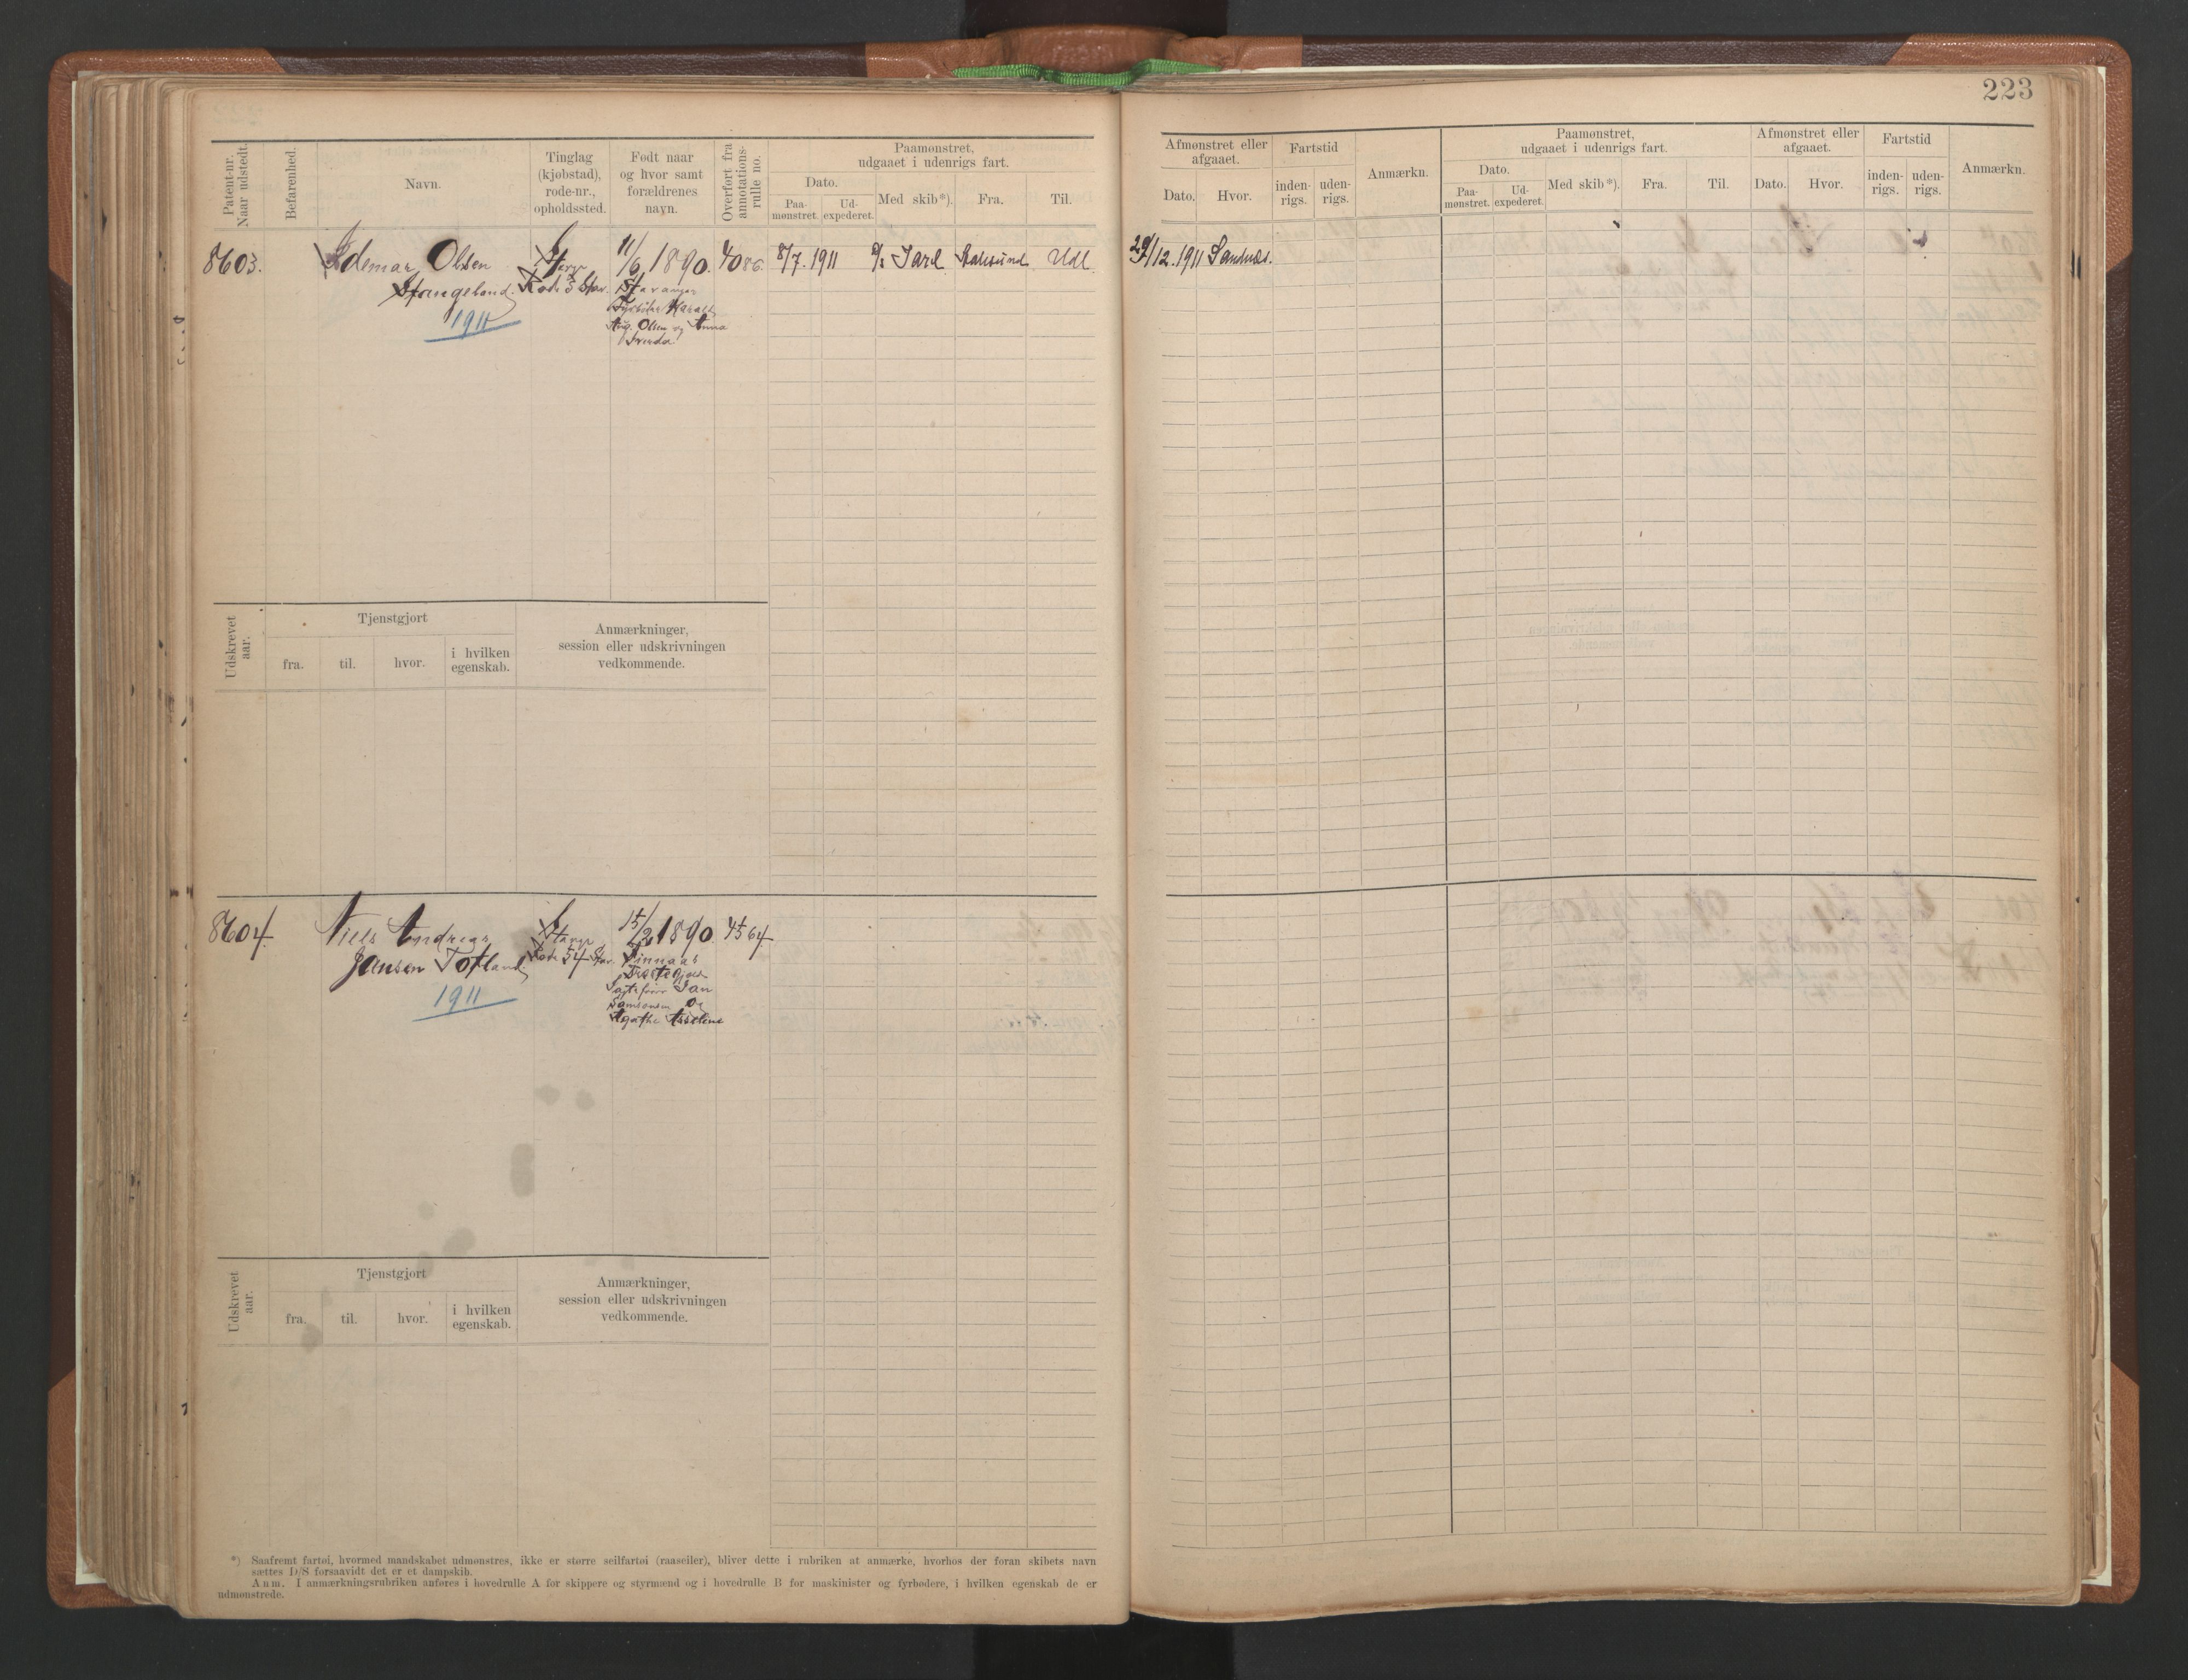 223
Patent-nr.
Naar udstedt.
Befarenhed.
Navn.
Tinglag
(kjøbstad),
rode-nr.,
opholdssted.
Født naar
og hvor samt
forældrenes
navn.
Overført fra
annotations-
rulle no.
Paamønstret,
udgaaet i udenrigs fart.
Dato.
Paa-
mønstret.
Ud-
expederet.
Med skib*).
Fra.
Til.
Afmønstret eller
afgaaet.
Dato.
Hvor.
Fartstid
inden-
rigs.
uden-
rigs.
Anmærkn.
Paamønstret,
udgaaet i udenrigs fart.
Dato.
Paa-
mønstret.
Ud-
expederet.
Med skib*).
Fra.
Til.
Afmønstret eller
afgaaet.
Dato.
Hvor.
Fartstid
inden-
rigs.
uden-
rigs.
Anmærkn.
8603.
Idemar Olsen
Stangeland
1911
Rode 3 Stav.
11/6 1890.
Stavanger
Harald
Aug. Olsen og Anna
4086.
8/7. 1911
Jarl
Udl.
29/12. 1911 Sandnæs.
Udskrevet
aar.
Tjenstgjort
fra.
til.
hvor.
i hvilken
egenskab.
Anmærkninger,
session eller udskrivningen
vedkommende.
8604.
Niels Andreas
Jansen Totland
1911
Rode 54 Stav.
15/2 1890.
Jan
Samsonsen og
Agathe
4564
Udskrevet
aar.
Tjenstgjort
fra.
til.
hvor.
i hvilken
egenskab.
Anmærkninger,
session eller udskrivningen
vedkommende.
*) Saafremt fartøi, hvormed mandskabet udmønstres, ikke er større seilfartøi (raaseiler), bliver dette i rubriken at anmærke, hvorhos der foran skibets navn
sættes D/S forsaavidt det er et dampskib.
Anm. I anmærkningsrubriken anføres i hovedrulle A for skippere og styrmænd og i hovedrulle B for maskinister og fyrbødere, i hvilken egenskab de er
udmønstrede.